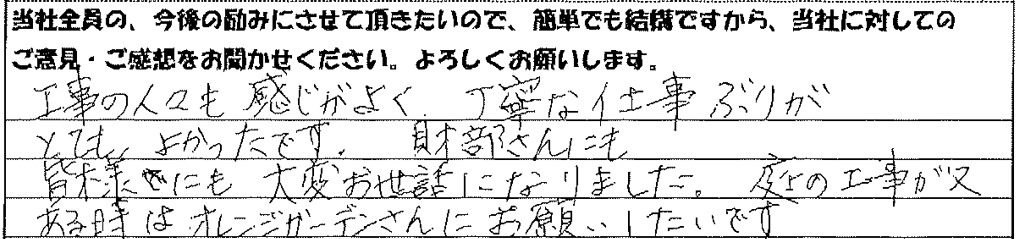 当社全員の、今後の励みにさせて頂きたいので、簡単でも結構ですから、当社に対しての
ご意見・ご感想をお聞かせください。よろしくお願いします。
工事の人々も 感じがよく、丁寧な仕事ぶりが
とても よかったです。財部さんにも
皆様にも 大変お世話になりました。庭の工事が又
ある時は オレンジガーデンさんに お願いしたいです